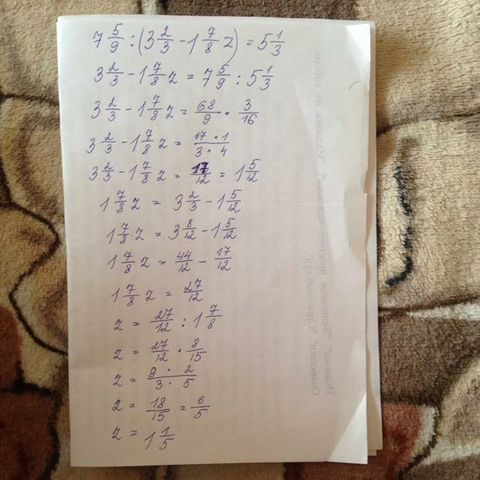 7 5/9 : (3 2/3 - 1 7/8 z) = 5 1/3
3 2/3 - 1 7/8 z = 7 5/9 : 5 1/3
3 2/3 - 1 7/8 z = 68/9 · 3/16
3 2/3 - 1 7/8 z = 17 · 1/3 · 4
3 2/3 - 1 7/8 z = 17/12 = 1 5/12
1 7/8 z = 3 2/3 - 1 5/12
1 7/8 z = 3 8/12 - 1 5/12
1 7/8 z = 44/12 - 17/12
1 7/8 z = 27/12
z = 27/12 : 1 7/8
z = 27/12 · 8/15
z = 9 · 2/3 · 5
z = 18/15 = 6/5
z = 1 1/5